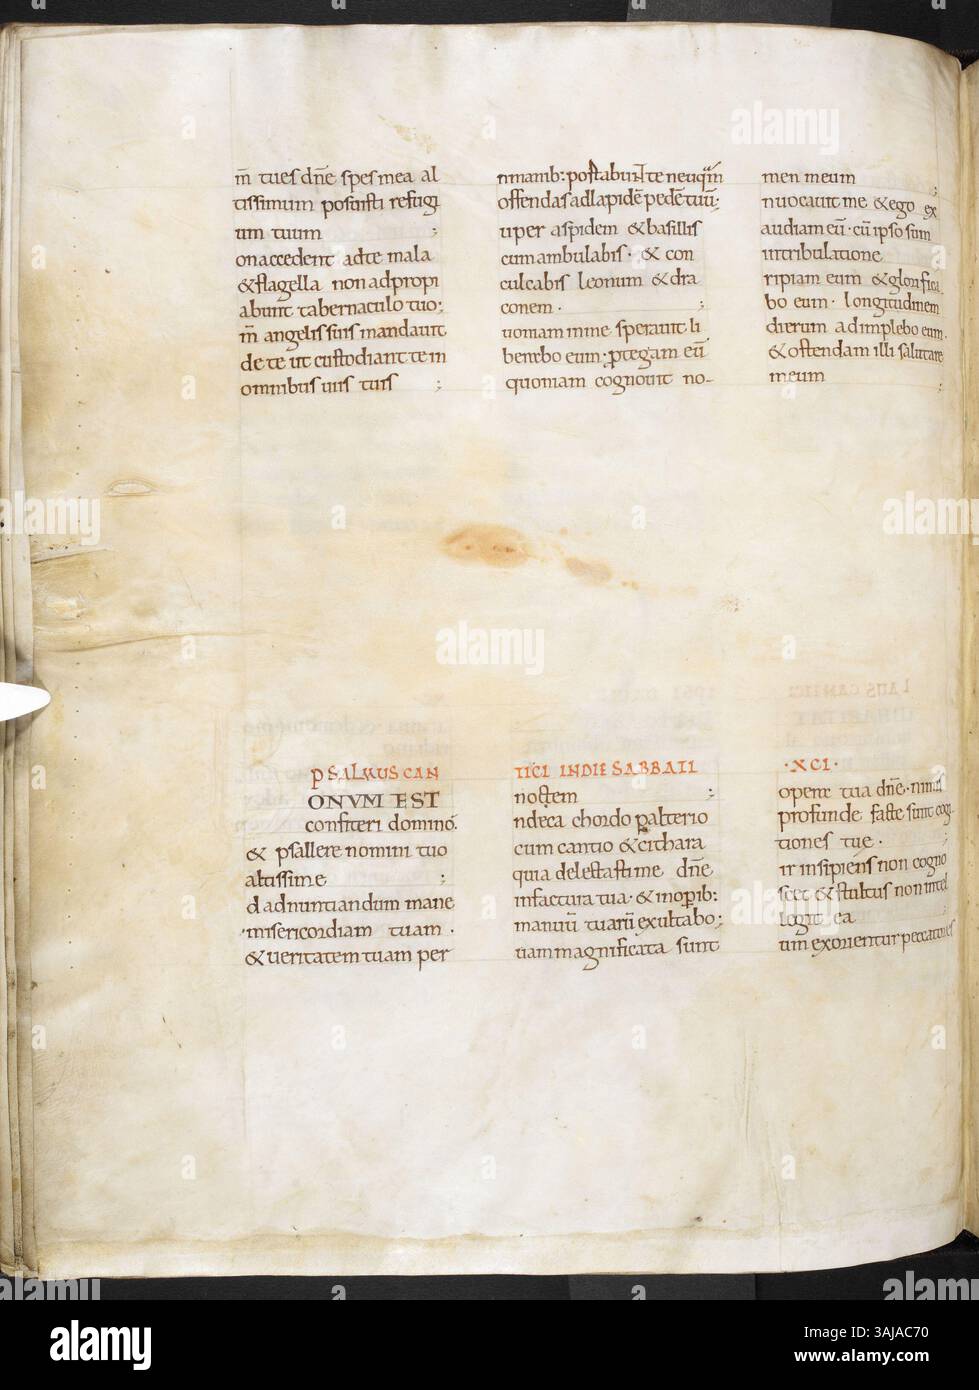 m̄ tues dn̄e spes mea al
tissimum posuisti refugi
um tuum ;
onaccedent adte mala
&flagella nonadpropi
abunt tabernaculo tuo;
m̄ angelis suis mandavit
de te ut custodiant te in
omnibus viis tuis ;
nmanib: portabunt te neq
offendas adlapidē pedē tuū;
uper aspidem & basilis
cum ambulabis · & con
culcabis leonum & dra
conem · ;
uoniam inme speravit li
berabo eum: ptegam eū
quoniam cognovit no-
men meum ;
nvocavit me & ego ex
audiam eū · cū ipso sum
intribulatione
ripiam eum & glorifica
bo eum · longitudinem
dierum adimplebo eum ·
& ostendam illi salutare
meum ;
PSALMUS CAN
ONUM EST
confiteri domino.
& psallere nomini tuo
altissime ;
dadnuntiandum mane
misericordiam tuam ·
& veritatem tuam per
TICI INDIE SABBATI
noctem ;
ndeca chordo psalterio
cum cantico & cithara
quia delectasti me dn̄e
infactura tua · & inoperib:
manuū tuarū exultabo;
uam magnificata sunt
·XCI·
opera tua dn̄e · nimis
profunde facte sunt cogi
tiones tue ·
ir insipiens non cogno
scet & stultus non intel
legit ea
um exorientur peccatores
alamy
Image ID: 3AJAC70
www.alamy.com